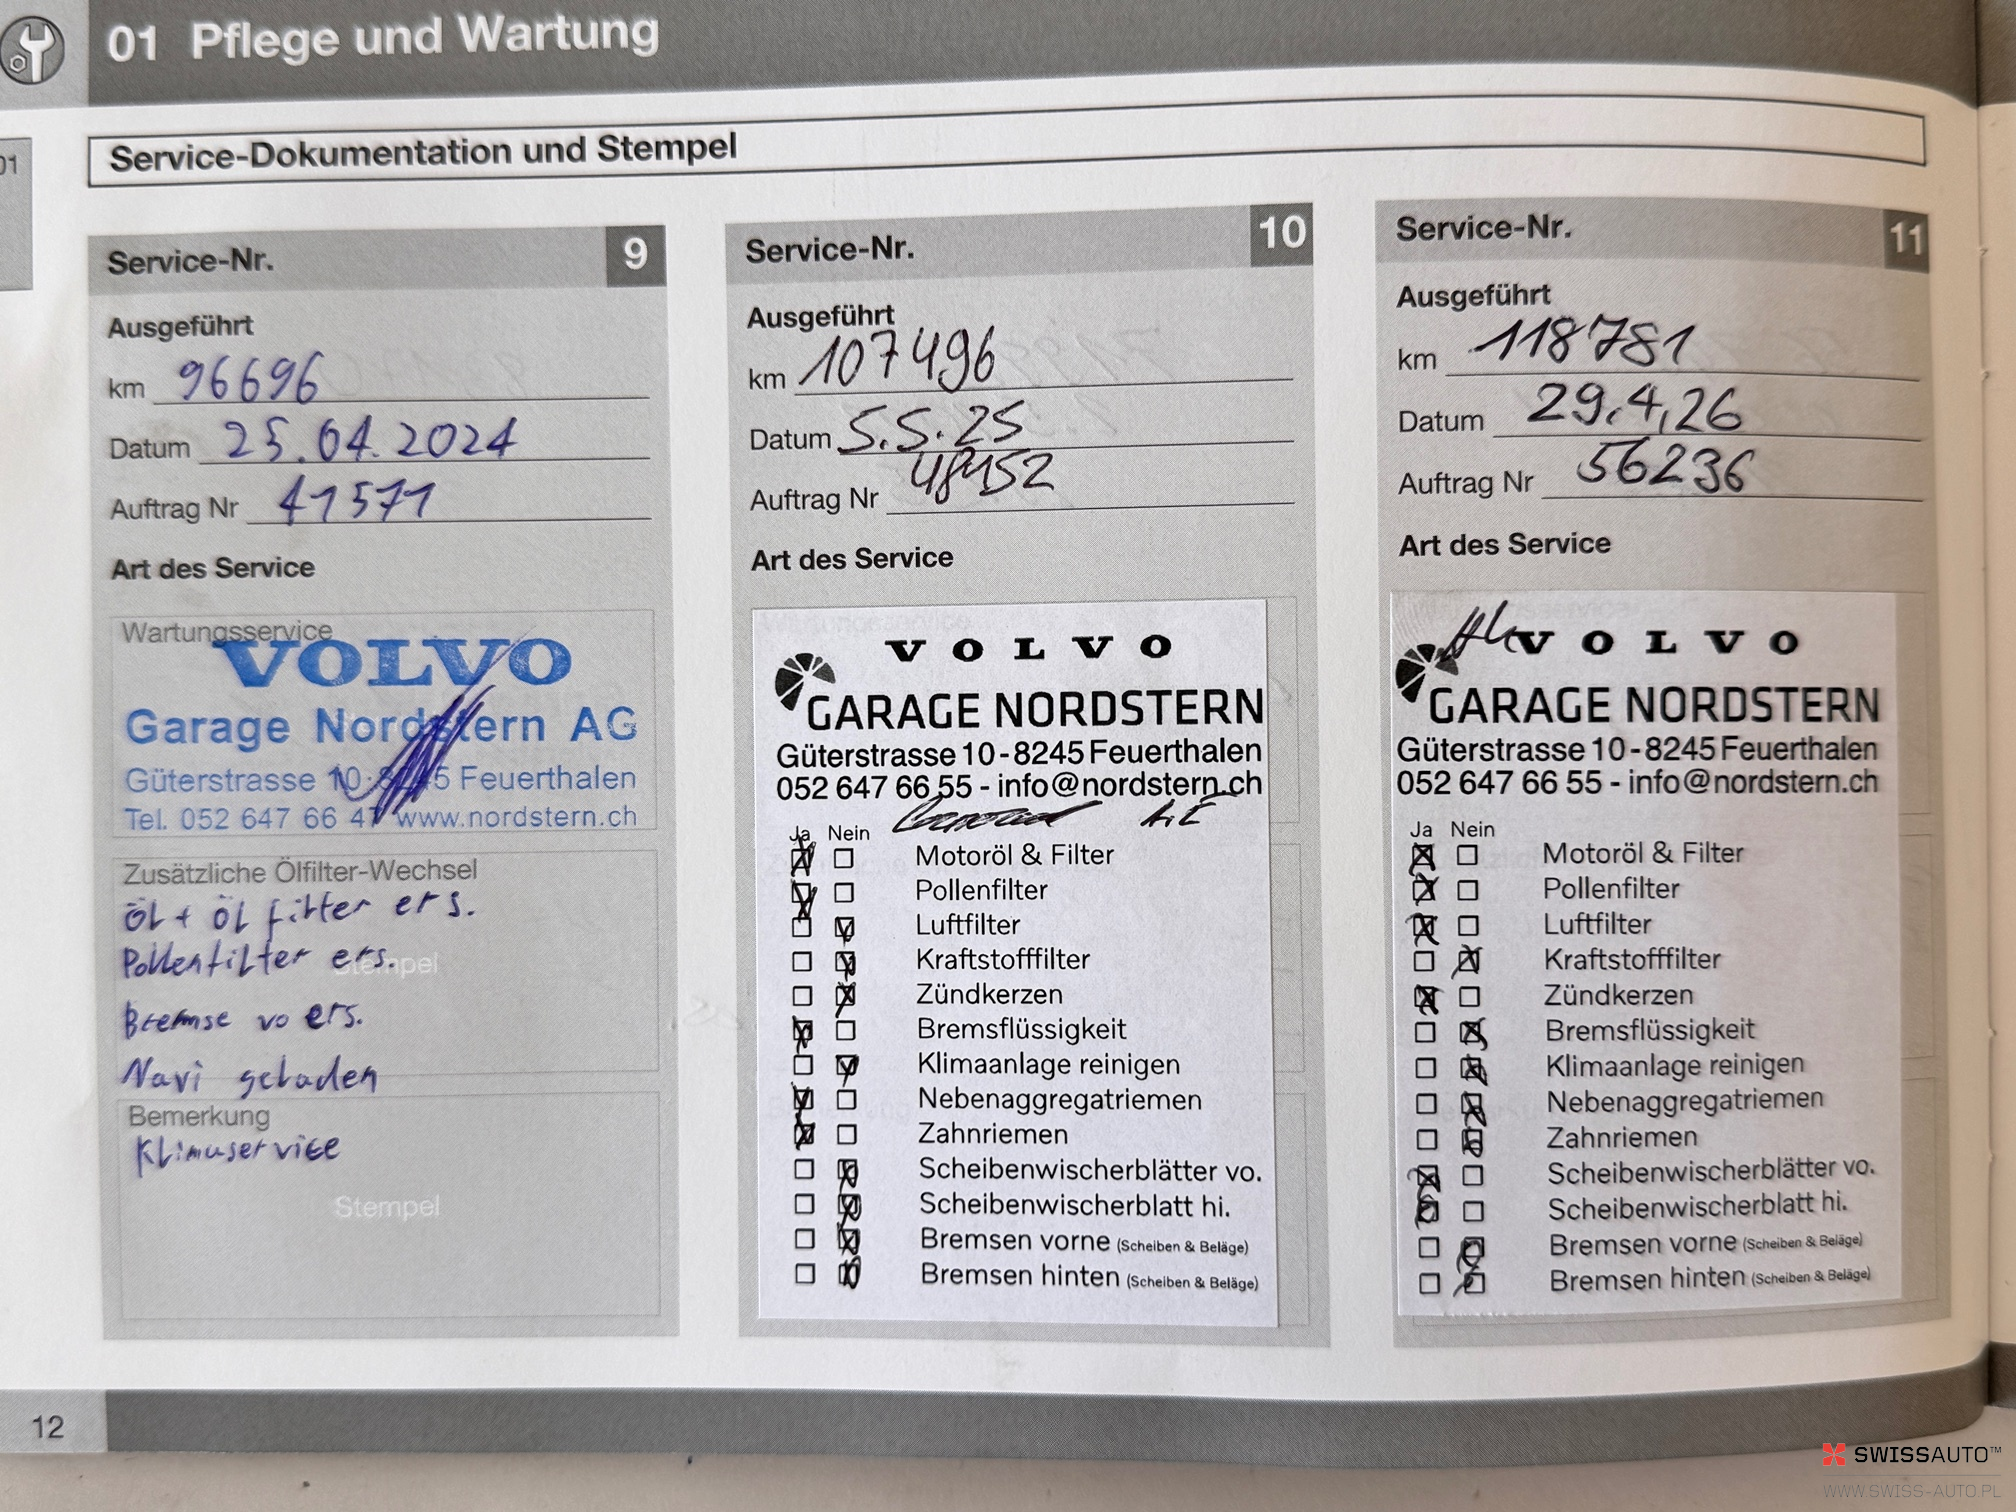 01 Pflege und Wartung
01
Service-Dokumentation und Stempel
Service-Nr. 9
Ausgeführt
km 96696
Datum 25.04.2024
Auftrag Nr 41571
Art des Service
Wartungsservice
VOLVO
Garage Nordstern AG
Güterstrasse 10-8245 Feuerthalen
Tel. 052 647 66 47 www.nordstern.ch
Zusätzliche Ölfilter-Wechsel
Öl + Öl filter ers.
Pollenfilter ers.
Stempel
Bremse vo ers.
Navi geladen
Bemerkung
Klimaservice
Stempel
Service-Nr. 10
Ausgeführt
km 107496
Datum 5.5.25
Auftrag Nr 48452
Art des Service
VOLVO
GARAGE NORDSTERN
Güterstrasse 10 - 8245 Feuerthalen
052 647 66 55 - info@nordstern.ch
Ja Nein
Motoröl & Filter
Pollenfilter
Luftfilter
Kraftstofffilter
Zündkerzen
Bremsflüssigkeit
Klimaanlage reinigen
Nebenaggregatriemen
Zahnriemen
Scheibenwischerblätter vo.
Scheibenwischerblatt hi.
Bremsen vorne (Scheiben & Beläge)
Bremsen hinten (Scheiben & Beläge)
Service-Nr. 11
Ausgeführt
km 118781
Datum 29.4.26
Auftrag Nr 56236
Art des Service
VOLVO
GARAGE NORDSTERN
Güterstrasse 10 - 8245 Feuerthalen
052 647 66 55 - info@nordstern.ch
Ja Nein
Motoröl & Filter
Pollenfilter
Luftfilter
Kraftstofffilter
Zündkerzen
Bremsflüssigkeit
Klimaanlage reinigen
Nebenaggregatriemen
Zahnriemen
Scheibenwischerblätter vo.
Scheibenwischerblatt hi.
Bremsen vorne (Scheiben & Beläge)
Bremsen hinten (Scheiben & Beläge)
12
SWISSAUTO™
WWW.SWISS-AUTO.PL